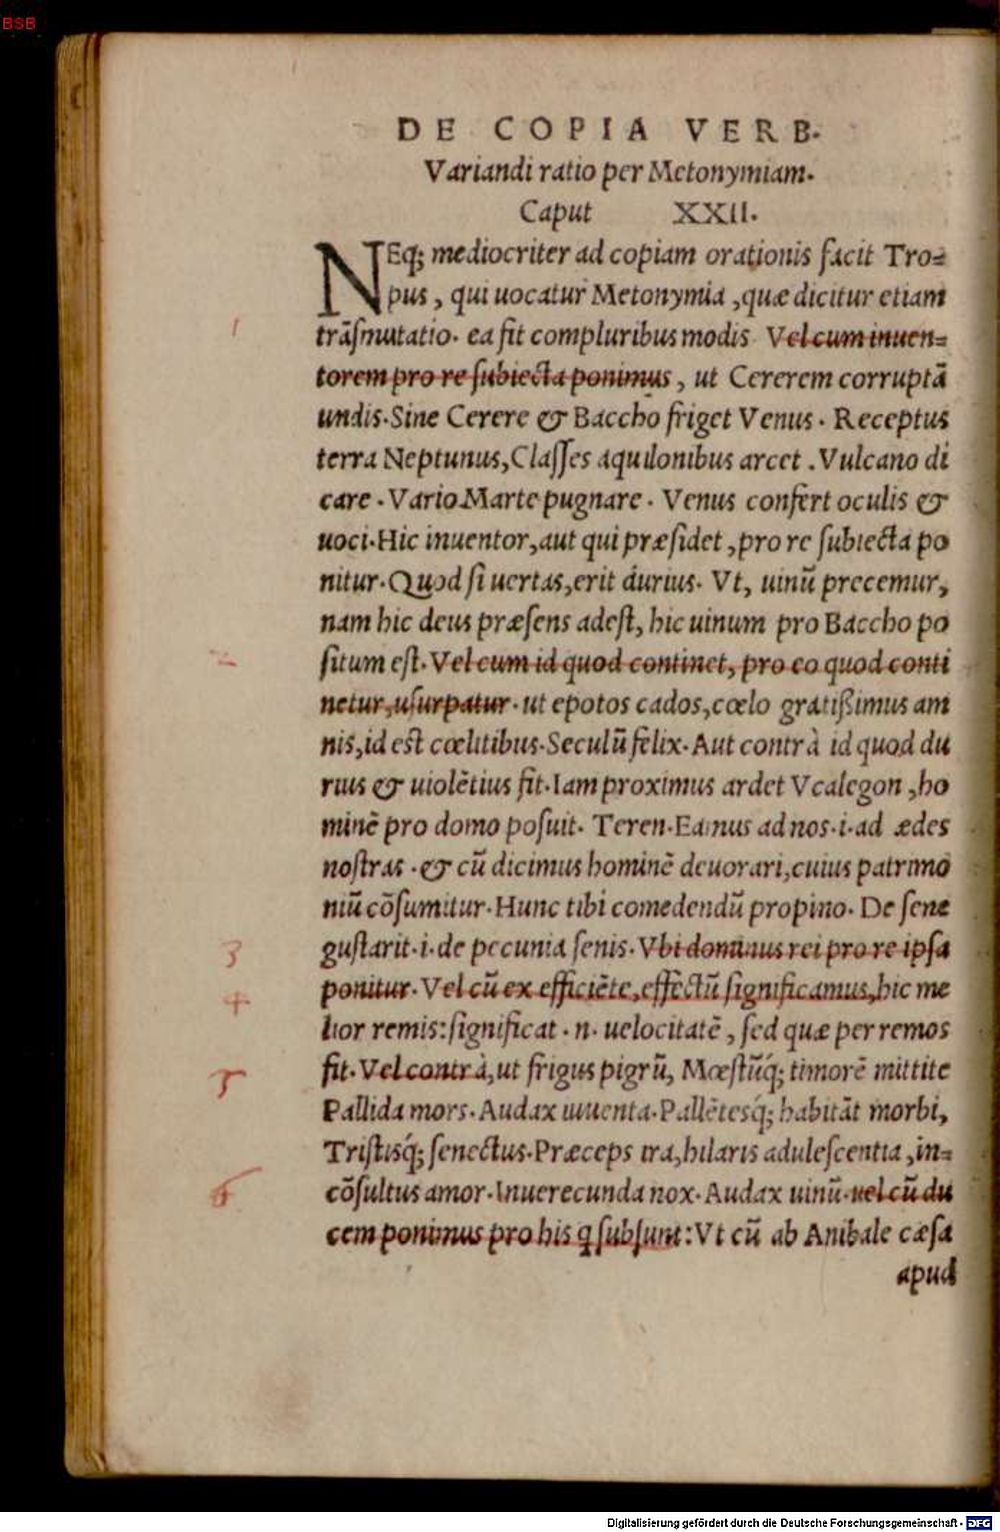 BSB
DE COPIA VERB.
Variandi ratio per Metonymiam.
Caput XXII.
NEq; mediocriter ad copiam orationis facit Tro=
pus, qui uocatur Metonymia, quæ dicitur etiam
1 trāſmutatio. ea fit compluribus modis Vel cum inuen=
torem pro re ſubiecta ponimus, ut Cererem corruptā
undis. Sine Cerere & Baccho friget Venus. Receptus
terra Neptunus, Claſſes aquilonibus arcet. Vulcano di
care. Vario Marte pugnare. Venus confert oculis &
uoci. Hic inuentor, aut qui præſidet, pro re ſubiecta po
nitur. Quod ſi uertas, erit durius. Vt, uinū precemur,
nam hic deus præſens adeſt, hic uinum pro Baccho po
2 ſitum eſt. Vel cum id quod continet, pro eo quod conti
netur, uſurpatur. ut epotos cados, cœlo gratißimus am
nis, id eſt cœlitibus. Seculū felix. Aut contrà id quod du
rius & uiolētius fit. Iam proximus ardet Vcalegon, ho
minē pro domo poſuit. Teren. Eamus ad nos. i. ad ædes
noſtras. & cū dicimus hominē deuorari, cuius patrimo
niū cōſumitur. Hunc tibi comedendū propino. De ſene
3 guſtarit. i. de pecunia ſenis. Vbi dominus rei pro re ipſa
4 ponitur. Vel cū ex efficiēte, effectū ſignificamus, hic me
lior remis: ſignificat. n. uelocitatē, ſed quæ per remos
5 fit. Vel contrà, ut frigus pigrū, Mœſtūq́; timorē mittite
Pallida mors. Audax iuuenta. Pallētesq́; habitāt morbi,
Triſtisq́; ſenectus. Præceps ira, hilaris aduleſcentia, in=
6 cōſultus amor. Inuerecunda nox. Audax uinū. uel cū du
cem ponimus pro his q ſubſunt: Vt cū ab Anibale cæſa
apud
Digitalisierung gefördert durch die Deutsche Forschungsgemeinschaft - DFG